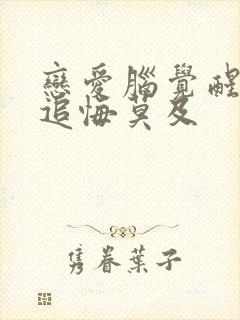 戀愛腦覺醒
追悔莫及
雋眷葉子